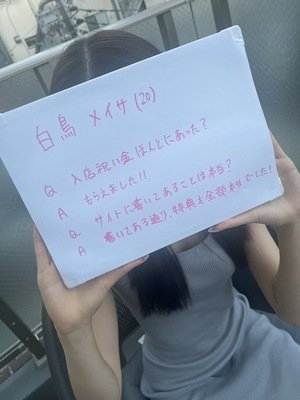 白鳥 メイサ(20)
Q 入店祝い金ほんとにあった?
A もらえました!!
Q サイトに書いてあることは本当?
A 書いてある通り、特典も全部本当でした!